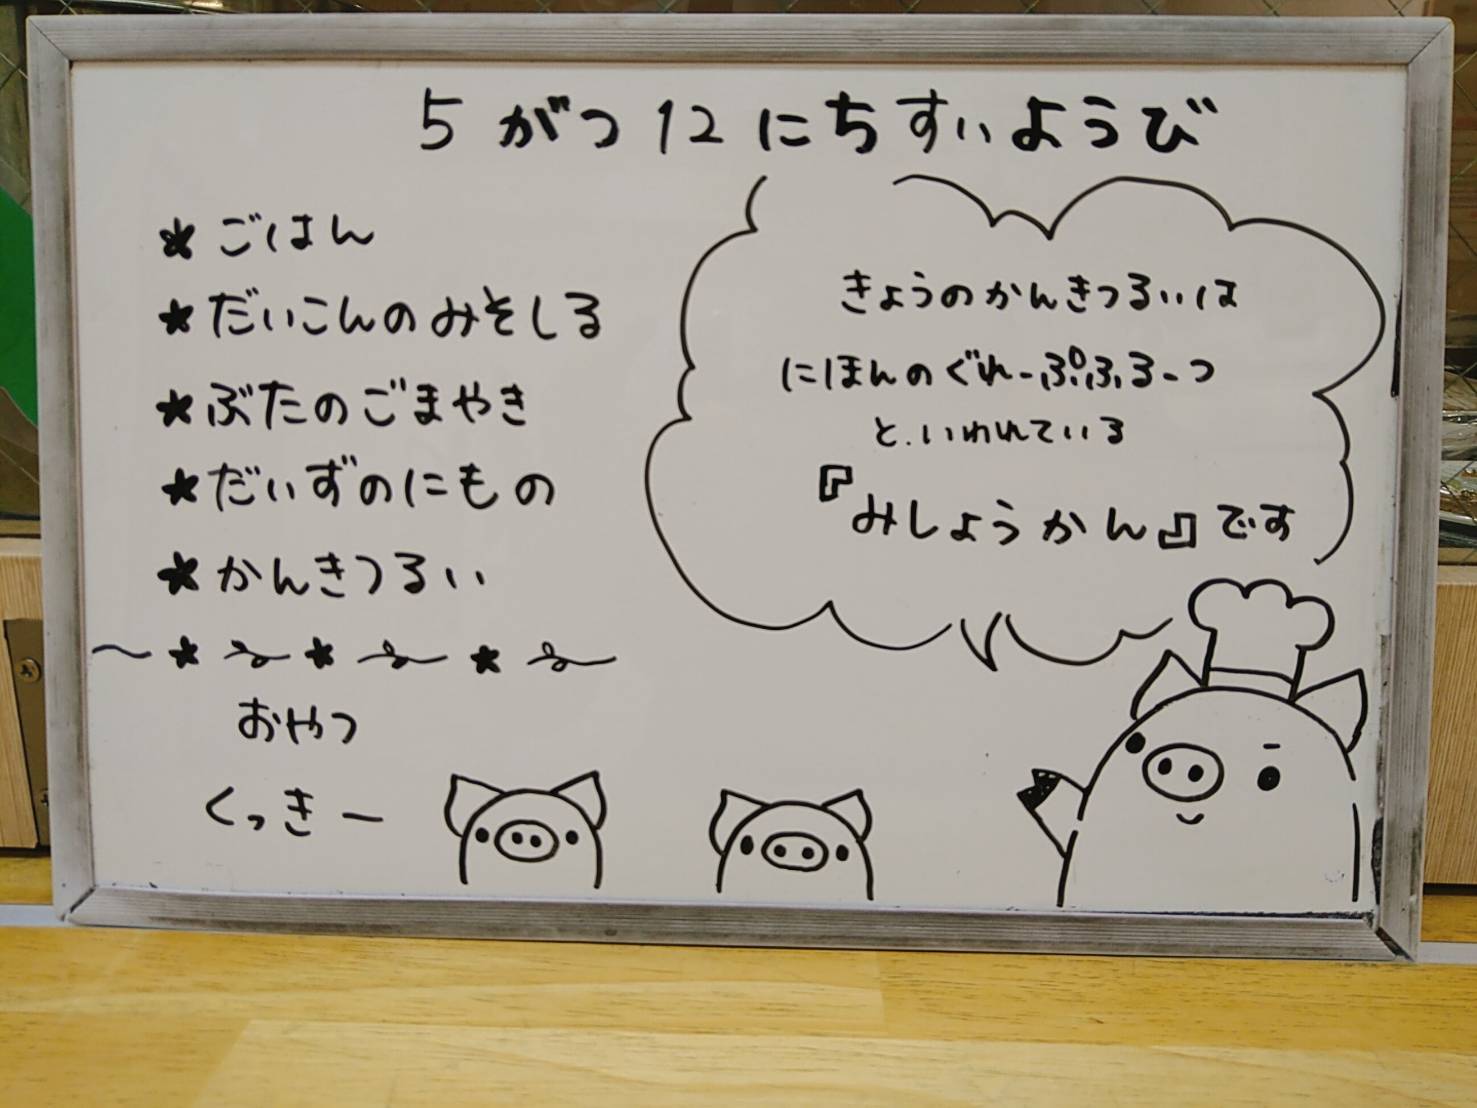 5がつ12にちすいようび
★ごはん
★だいこんのみそしる
★ぶたのごまやき
★だいずのにもの
★かんきつるい
おやつ
くっきー
きょうのかんきつるいは
にほんのぐれーぷふるーつ
と、いわれている
『みしょうかん』です